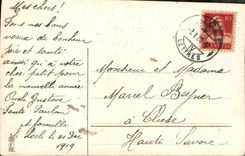 Mes chers!
Tous nos bons
vœux de bonheur
joie et santé
ainsi qu'à votre
cher petit pour la
nouvelle année
Oncle Gustave
Tante Pauline
& famille
Le Locle le 31 Déc
1919
Monsieur et Madame
Marcel Boyner
à Cluse
Haute Savoie
10